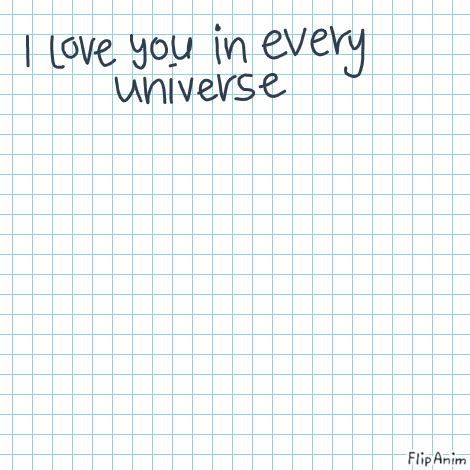 I love you in every
universe
FlipAnim